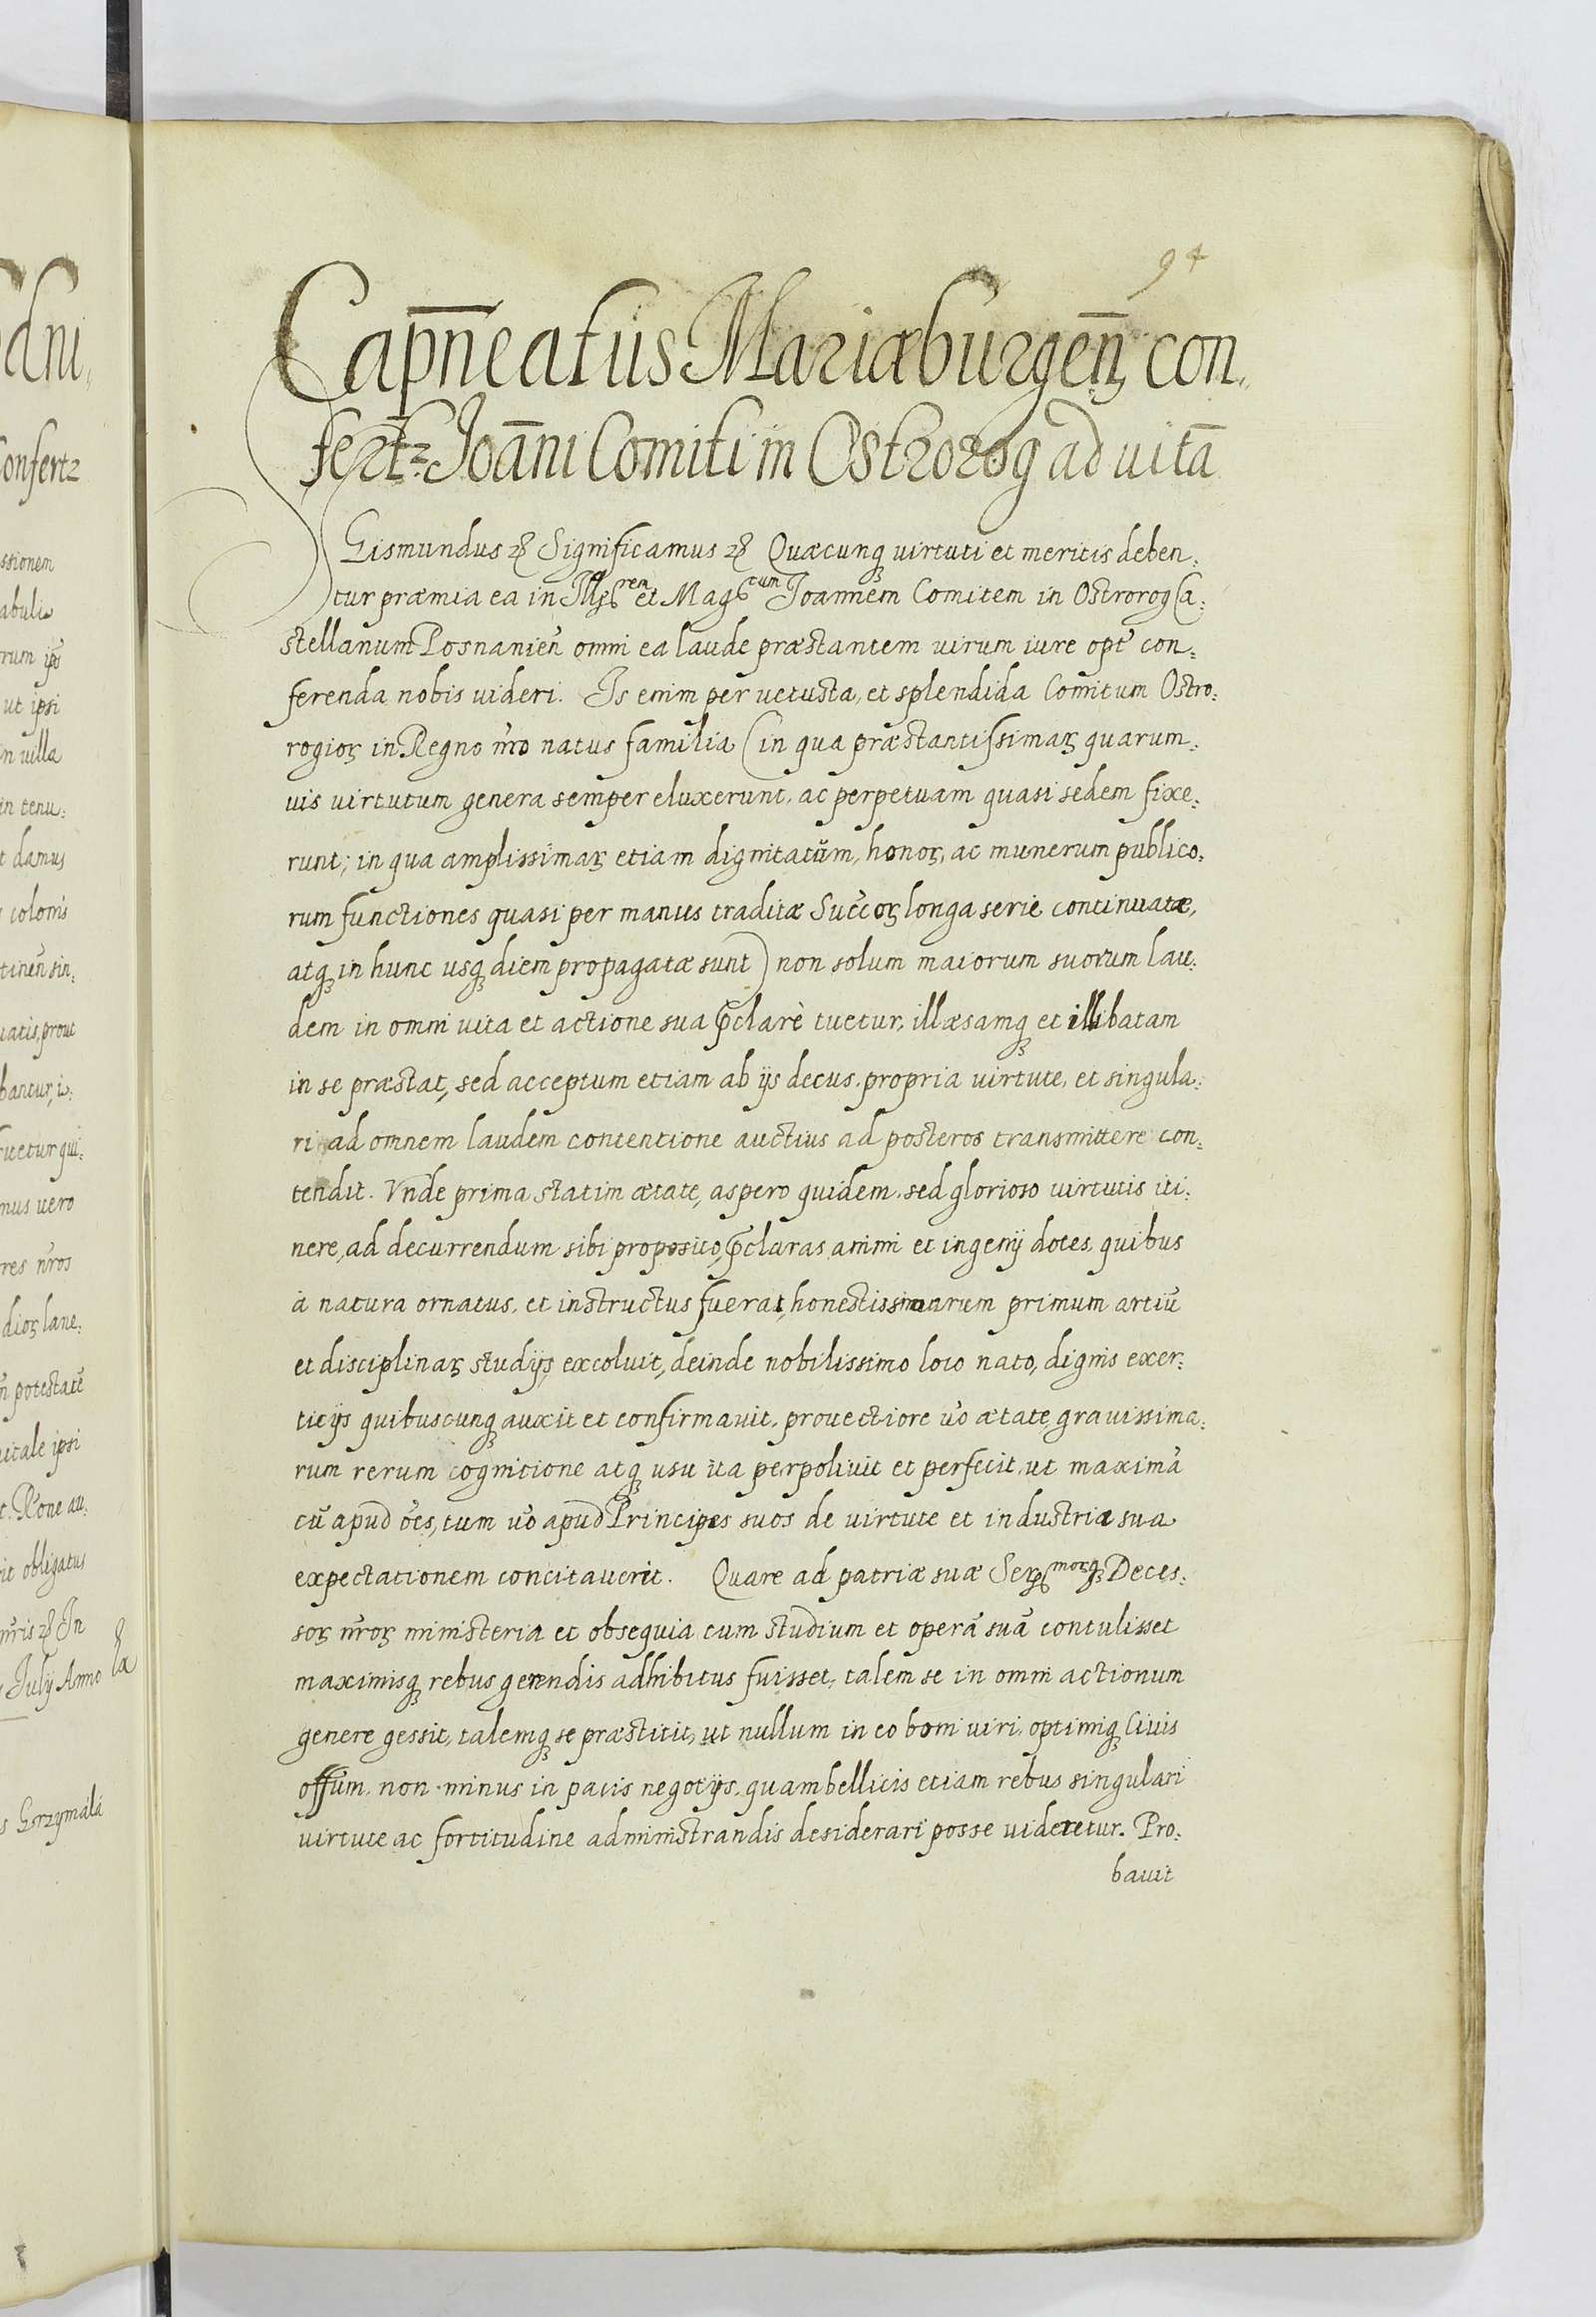 94
Capn̄eatus Mariæburgen̄ con,,
fert̄z Joāni Comiti in Ostrorog ad vitā
Gismundus ꝛc Significamus ꝛc Quæcunqꝫ virtuti et meritis deben:
tur præmia ea in Illꝫrem et Magcum Joannem Comitem in Ostrorog Ca:
stellanum Posnanien̄ omni ea laude præstantem virum iure opt̄ con:
ferenda nobis videri. Is enim per vetusta, et splendida Comitum Ostro:
rogioꝝ in Regno nr̄o natus familia (in qua præstantissimaꝝ quarum:
vis virtutum genera semper eluxerunt, ac perpetuam quasi sedem fixe:
runt; in qua amplissimaꝝ etiam dignitatum, honoꝝ, ac munerum publico:
rum functiones quasi per manus traditæ Succ̄oꝝ longa serie continuatæ,
atqꝫ in hunc usqꝫ diem propagatæ sunt) non solum maiorum suorum lau:
dem in omni vita et actione sua p̄clarè tuetur, illæsamqꝫ et illibatam
in se præstat, sed acceptum etiam ab ijs decus, propria virtute, et singula:
ri ad omnem laudem contentione auctius ad posteros transmittere con:
tendit. Vnde prima statim ætate, aspero quidem, sed glorioso virtutis iti:
nere, ad decurrendum sibi proposito, p̄claras animi et ingenij dotes, quibus
à natura ornatus, et instructus fuerat, honestissimarum primum artiū
et disciplinaꝝ studijs excoluit, deinde nobilissimo loco nato, dignis exer:
ticijs quibuscunqꝫ auxit et confirmavit, provectiore v̄o ætate, gravissima:
rum rerum cognitione atqꝫ usu ita perpolivit et perfecit, ut maximā
cū apud ōes, tum v̄o apud Principes suos de virtute et industria sua
expectationem concitaverit. Quare ad patriæ suæ Serꝫmorqꝫ Deces:
soꝝ nr̄oꝝ ministeria et obsequia cum studium et operā suā contulisset
maximisqꝫ rebus gerendis adhibitus fuisset, talem se in omni actionum
genere gessit, talemqꝫ se præstitit, ut nullum in eo boni viri, optimiqꝫ Civis
offum, non minus in pacis negotijs, quam bellicis etiam rebus singulari
virtute ac fortitudine administrandis desiderari posse videretur. Pro:
bavit